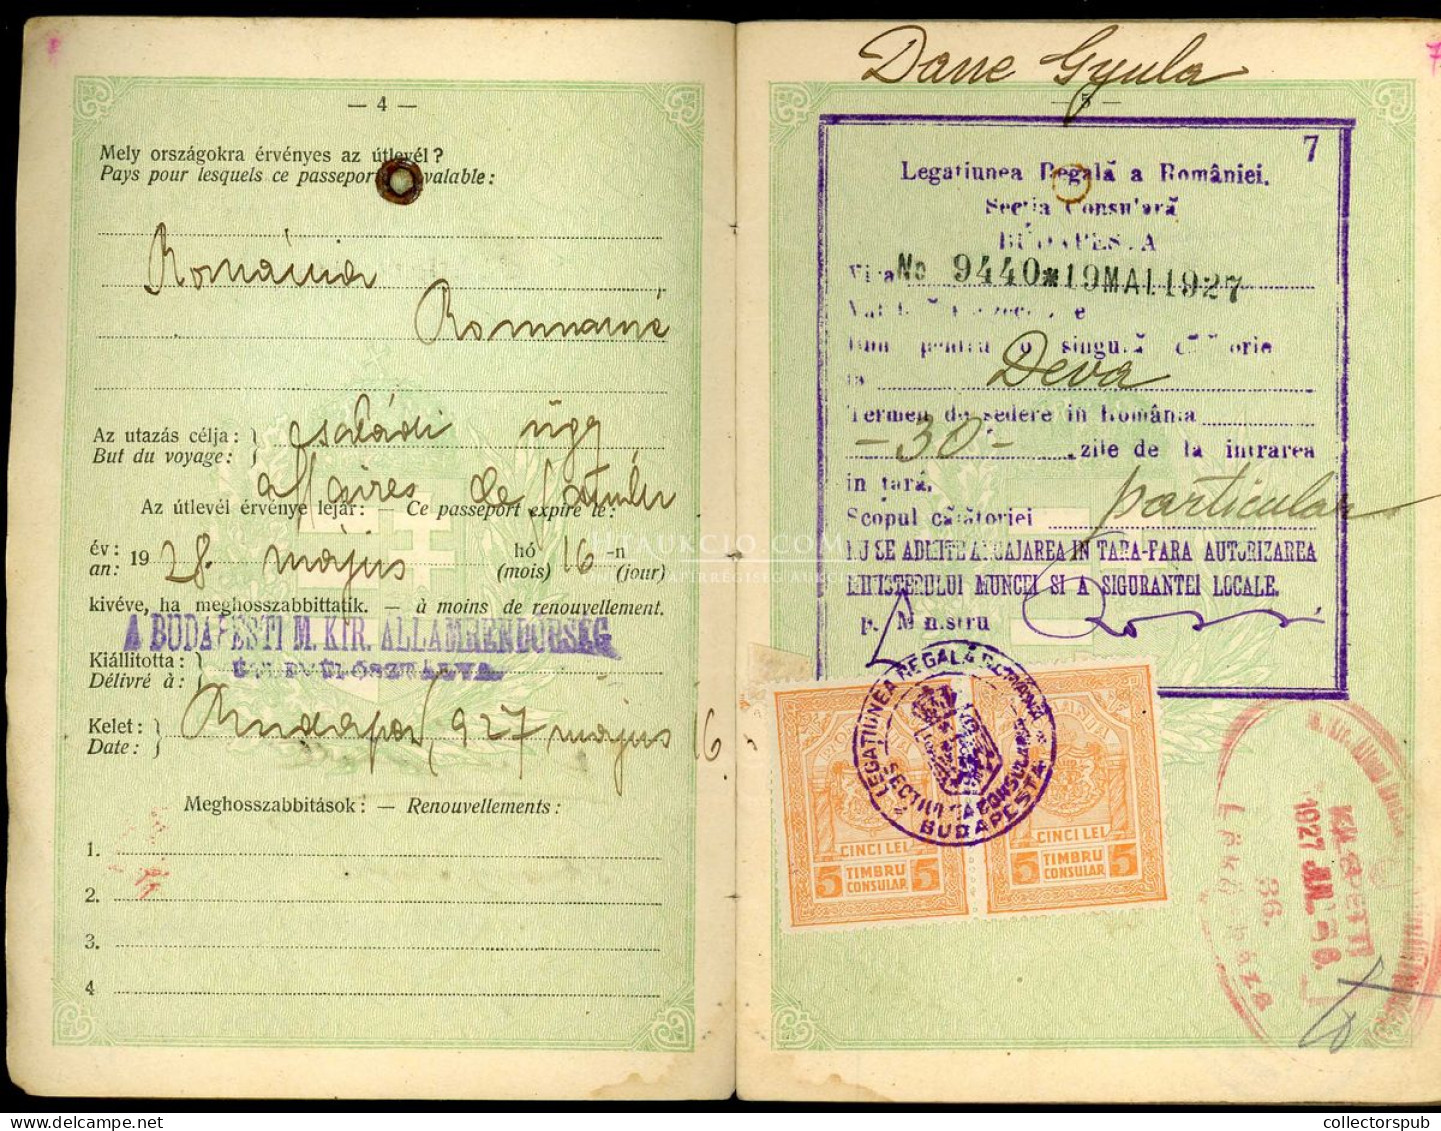 — 4 —
Mely országokra érvényes az útlevél?
Pays pour lesquels ce passeport valable:
Románia
Roumanie
Az utazás célja: családi ügy
But du voyage: affaires de famille
Az útlevél érvénye lejár: — Ce passeport expire le:
év: an: 1928. május hó (mois) 16 -n (jour)
kivéve, ha meghosszabbittatik. — à moins de renouvellement.
A BUDAPESTI M. KIR. ÁLLAMRENDŐRSÉG
Kiállította:
Délivré à:
Kelet: Budapest, 927 május 16.
Date:
Meghosszabbitások: — Renouvellements:
1.
2.
3.
4
Dane Gyula
— 5 —
7
Legatiunea Regală a României.
Sectia Consulară
BUDAPESTA
Viza No 9440*19MAI1927
bun pentru o singură călătorie
la Deva
Termen de sedere in România
-30- zile de la intrarea
in tară.
Scopul călătoriei particular
NU SE ADMITE ANGAJAREA IN TARA-FARA AUTORIZAREA
MINISTERULUI MUNCEI SI A SIGURANTEI LOCALE.
p. Ministru
LEGATIUNEA REGALĂ ROMÂNĂ
SECTIUNEA CONSULARĂ
BUDAPESTA
CINCI LEI
5 TIMBRU CONSULAR 5
CINCI LEI
5 TIMBRU CONSULAR 5
1927 JUL
36.
Lőkösháza
collectorspub.com